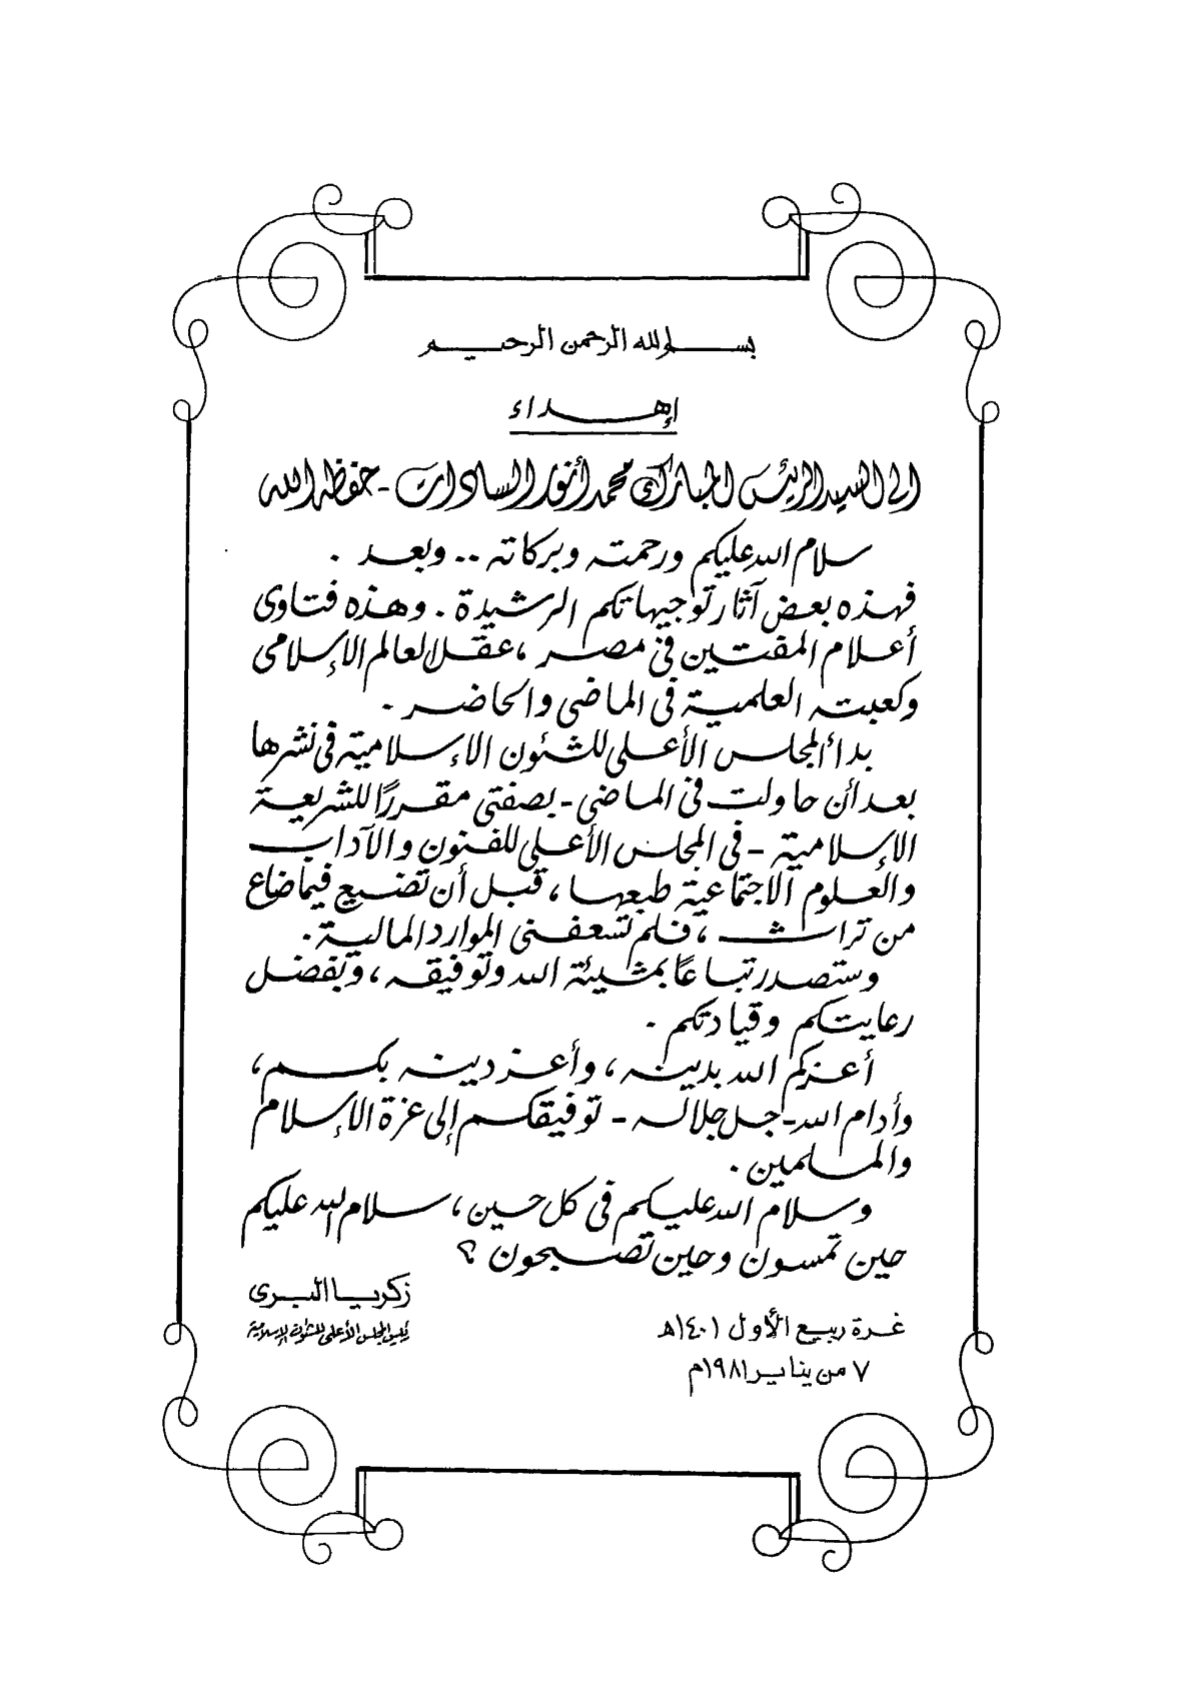 بسم الله الرحمن الرحيم
إهداء
إلى السيد الرئيس المبارك محمد أنور السادات - حفظه الله
سلام الله عليكم ورحمته وبركاته .. وبعد .
فهذه بعض آثار توجيهاتكم الرشيدة . وهذه فتاوى
أعلام المفتين فى مصر ، عقل العالم الإسلامى
وكعبته العلمية فى الماضى والحاضر .
بدأ المجلس الأعلى للشئون الإسلامية فى نشرها
بعد أن حاولت فى الماضى - بصفتى مقررًا للشريعة
الإسلامية - فى المجلس الأعلى للفنون والآداب
والعلوم الاجتماعية طبعها ، قبل أن تضيع فيما ضاع
من تراث ، فلم تسعفنى الموارد المالية .
وستصدر تباعًا بمشيئة الله وتوفيقه ، وبفضل
رعايتكم وقيادتكم .
أعزكم الله بدينه ، وأعز دينه بكم ،
وأدام الله - جل جلاله - توفيقكم إلى عزة الإسلام
والمسلمين .
وسلام الله عليكم فى كل حين ، سلام الله عليكم
حين تمسون وحين تصبحون ؟
زكريا البرى
رئيس المجلس الأعلى للشئون الإسلامية
غرة ربيع الأول ١٤٠١هـ
٧ من يناير ١٩٨١م